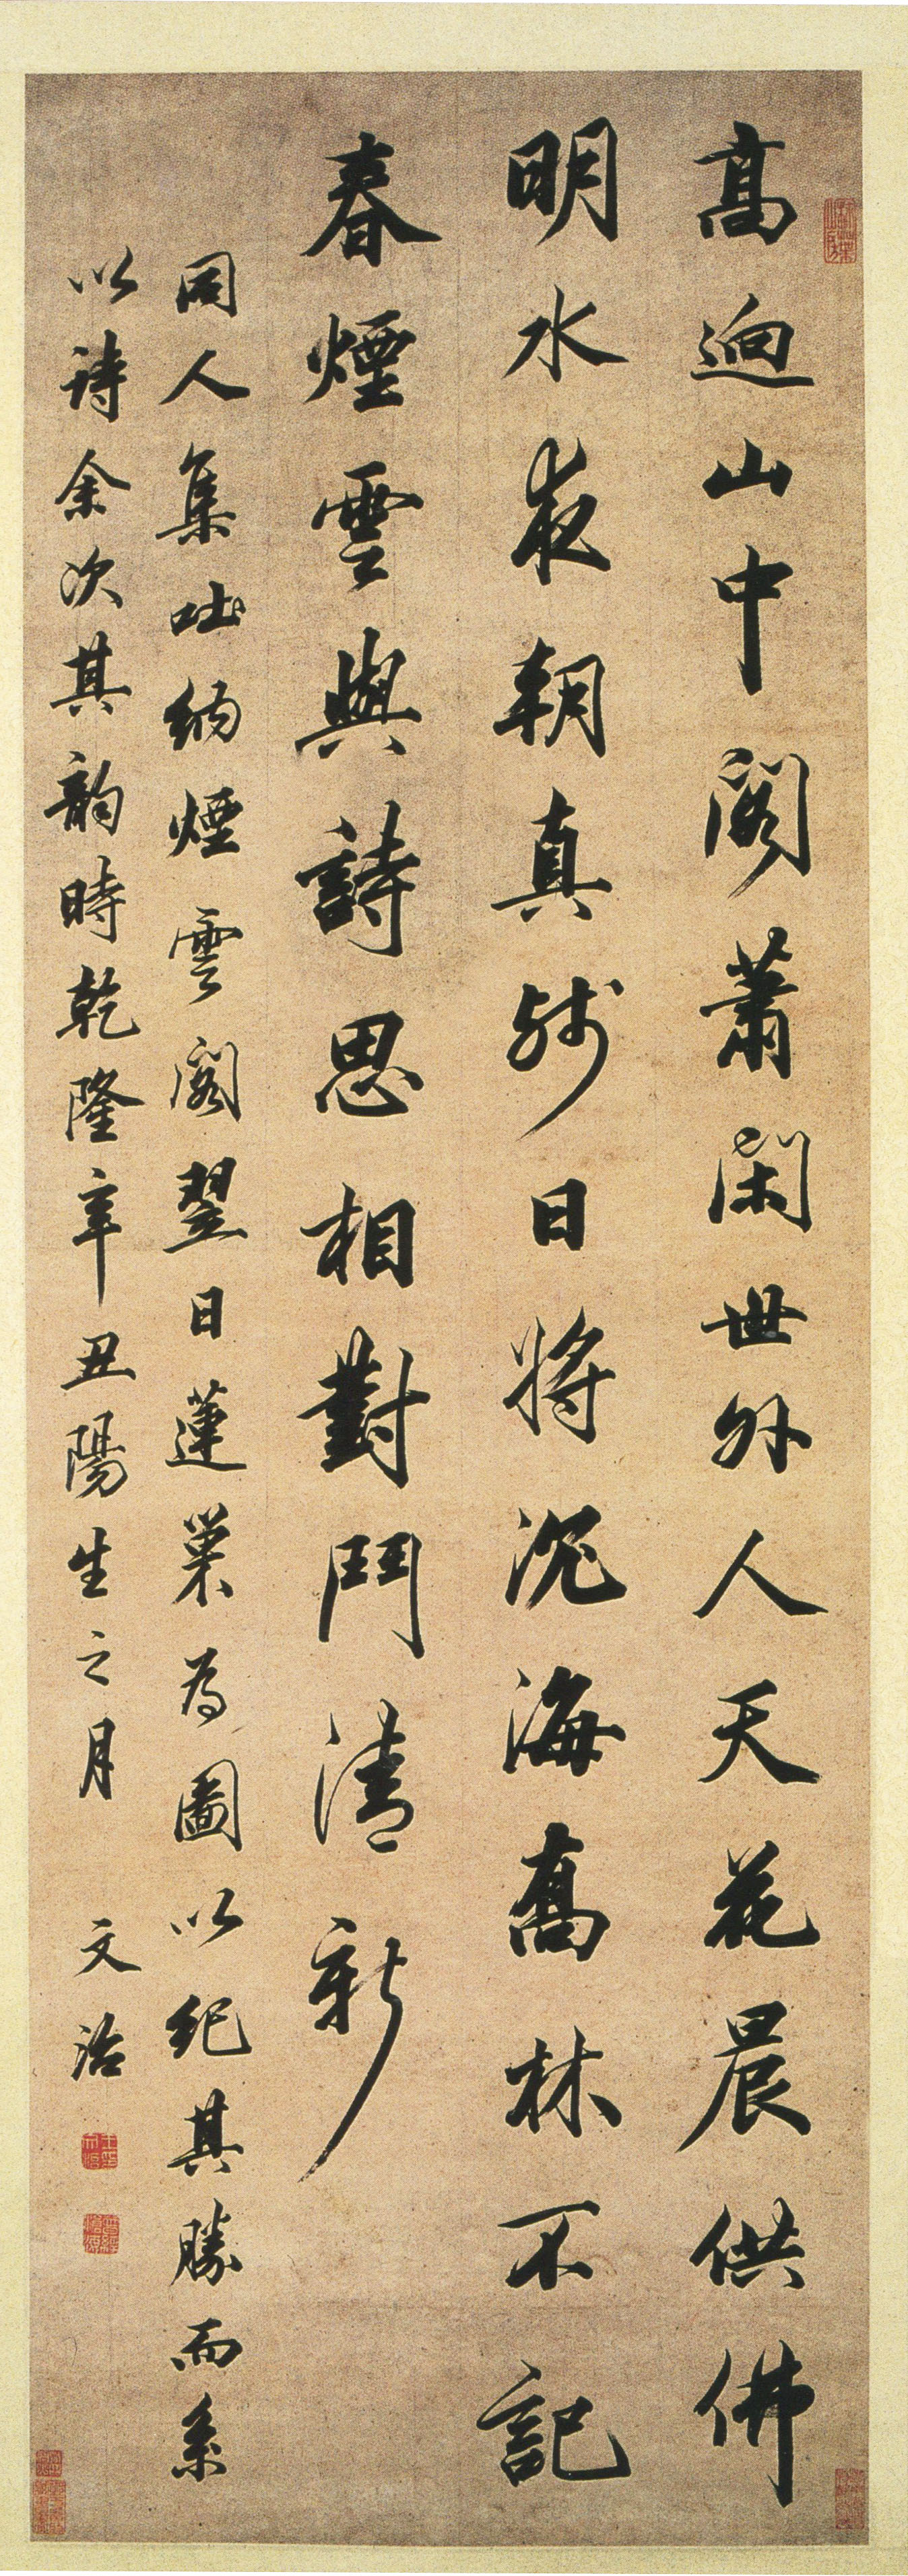 高逈山中閣蕭閑世外人天花晨供佛
明水夜朝真殘日將沉海高林不記
春煙雲與詩思相對鬥清新
同人集吐納煙雲閣翌日蓮巢為圖以紀其勝而系
以詩余次其韵時乾隆辛丑陽生之月 文治